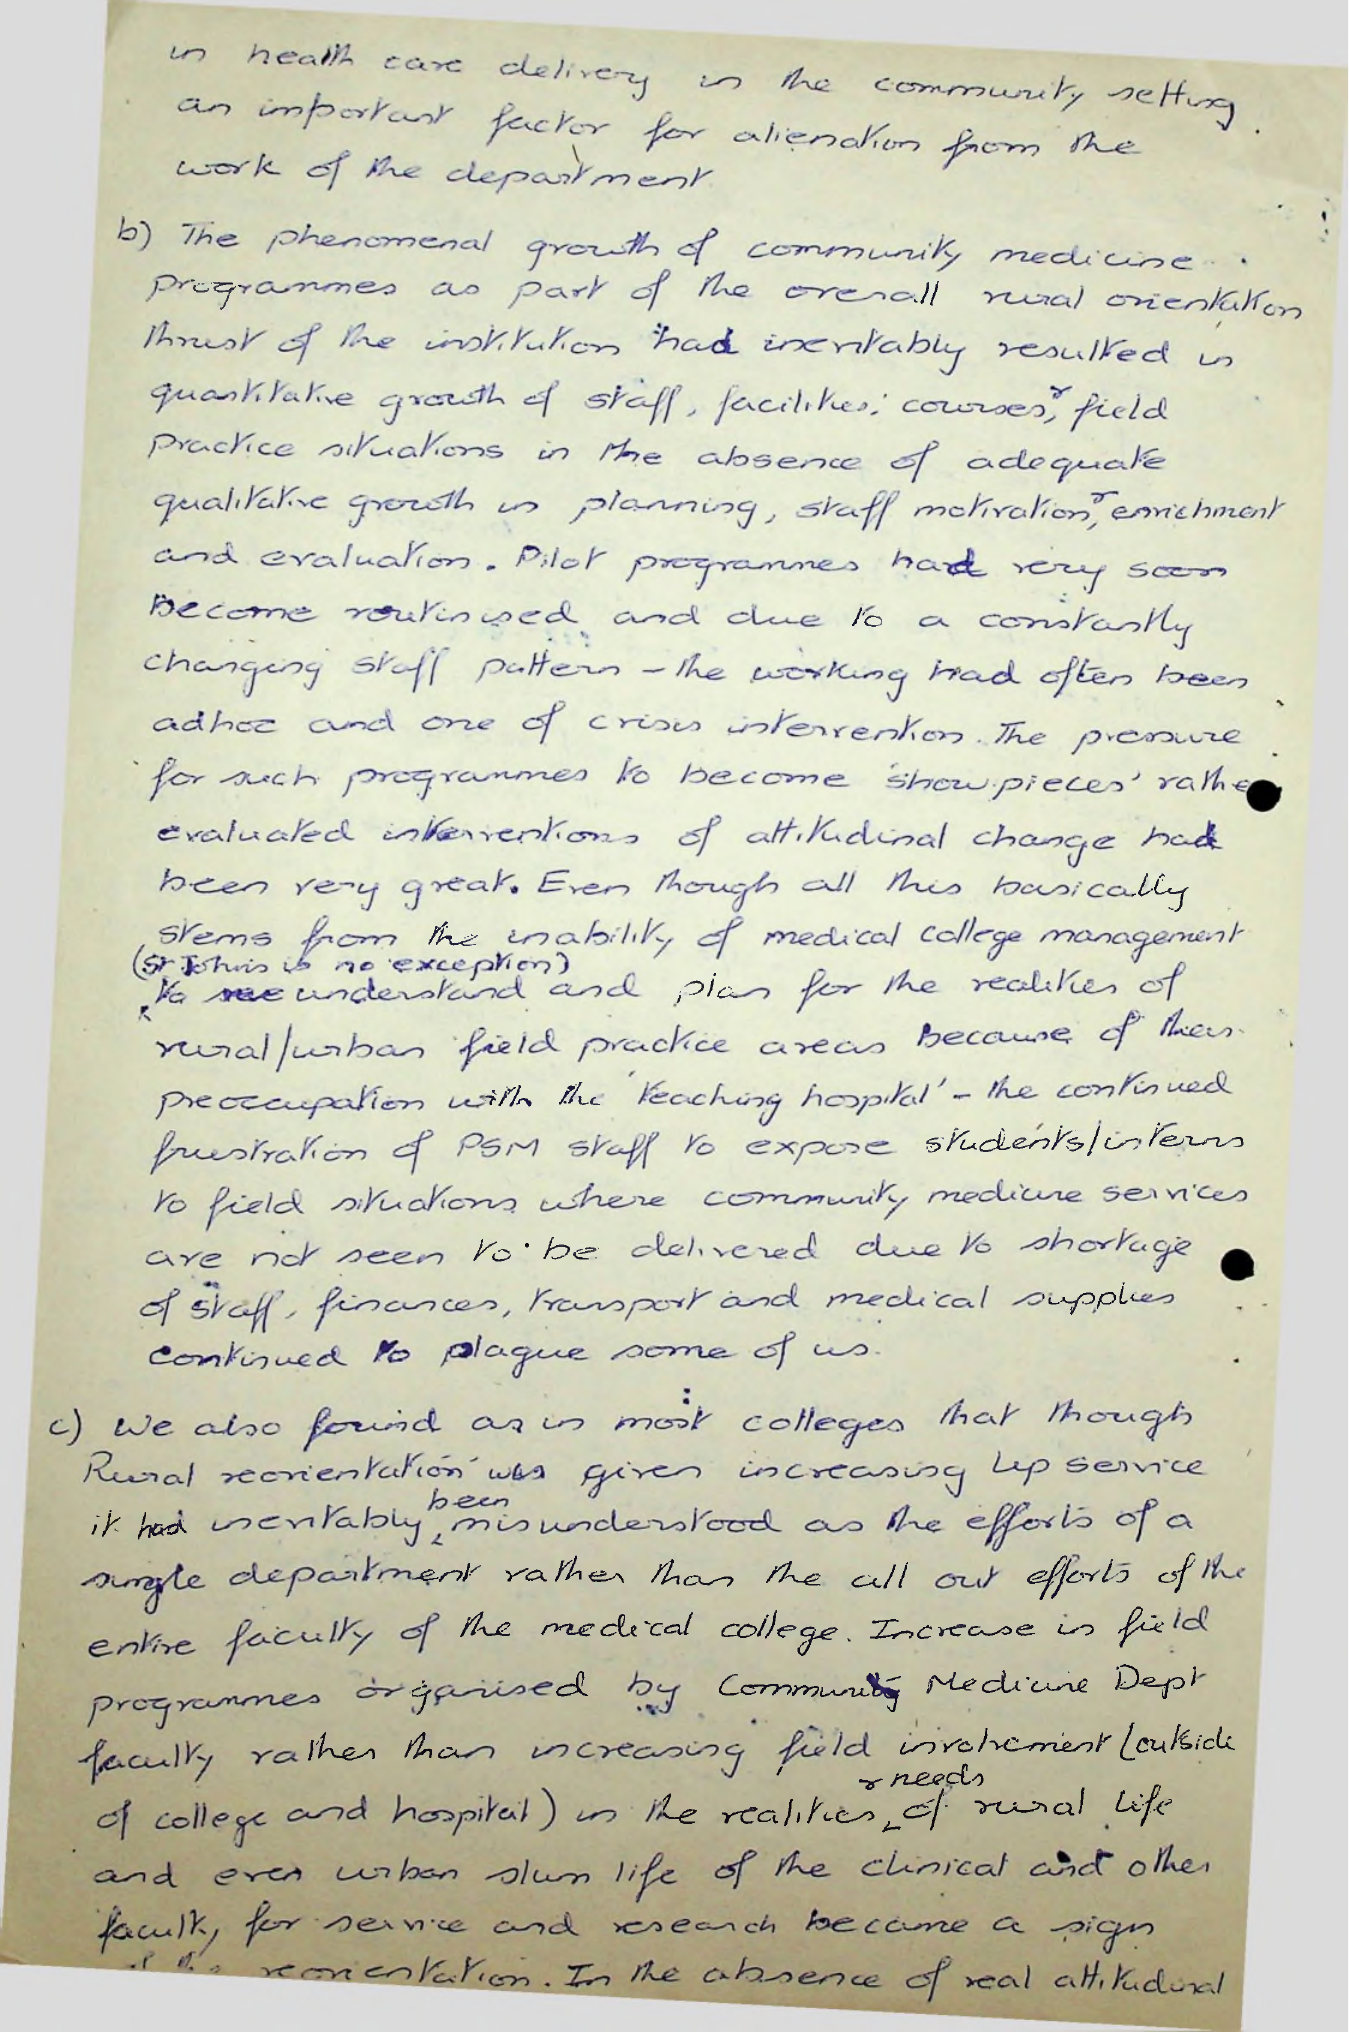 in health care delivery in the community setting
an important factor for alienation from the
work of the department
b) The phenomenal growth of community medicine
programmes as part of the overall rural orientation
thrust of the institution had inevitably resulted in
quantitative growth of staff, facilities, courses, & field
practice situations in the absence of adequate
qualitative growth in planning, staff motivation, & enrichment
and evaluation. Pilot programmes had very soon
become routinised and due to a constantly
changing staff pattern - the working had often been
adhoc and one of crisis intervention. The pressure
for such programmes to become 'showpieces' rather
evaluated interventions of attitudinal change had
been very great. Even though all this basically
stems from the inability of medical college management
(St John's is no exception)
to understand and plan for the realities of
rural/urban field practice areas because of their
preoccupation with the 'teaching hospital' - the continued
frustration of PSM staff to expose students/interns
to field situations where community medicine services
are not seen to be delivered due to shortage
of staff, finances, transport and medical supplies
continued to plague some of us.
c) We also found as in most colleges that though
Rural reorientation was given increasing lip service
it had inevitably been misunderstood as the efforts of a
single department rather than the all out efforts of the
entire faculty of the medical college. Increase in field
programmes organised by Community Medicine Dept
faculty rather than increasing field involvement (outside
of college and hospital) in the realities & needs of rural life
and even urban slum life of the clinical and other
faculty for service and research became a sign
of this reorientation. In the absence of real attitudinal